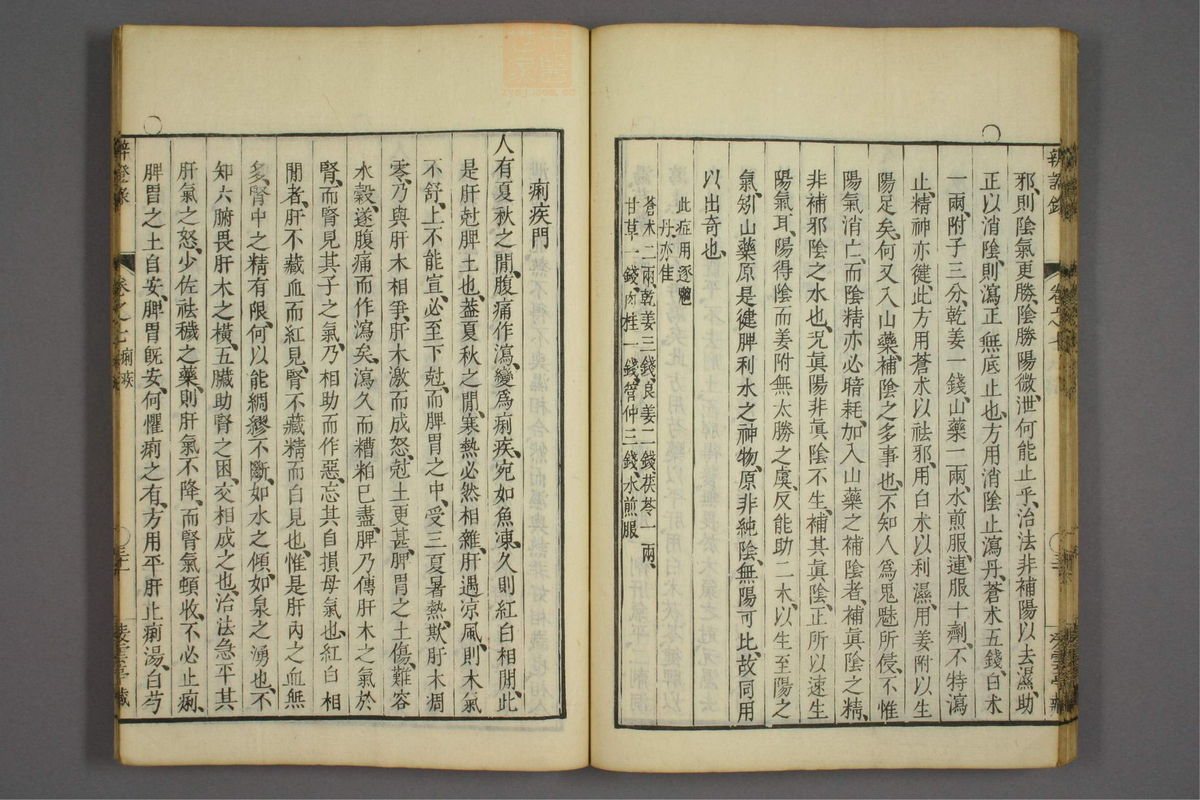 辨證錄 卷之七
邪、則陰氣更勝、陰勝陽微、泄何能止乎、治法非補陽以去濕、助
正以消陰、則瀉正無底止也、方用消陰止瀉丹、蒼朮五錢、白朮
一兩、附子三分、乾姜一錢、山藥一兩、水煎服、連服十劑、不特瀉
止、精神亦健、此方用蒼朮以祛邪、用白朮以利濕、用姜附以生
陽足矣、何又入山藥、補陰之多事也、不知人為鬼魅所侵、不惟
陽氣消亡、而陰精亦必暗耗、加入山藥之補陰者、補真陰之精、
非補邪陰之水也、況真陽非真陰不生、補其真陰、正所以速生
陽氣耳、陽得陰而姜附無太勝之虞、反能助二朮、以生至陽之
氣、矧山藥原是健脾利水之神物、原非純陰、無陽可比、故同用
以出奇也、
此症用逐魈
丹、亦佳
蒼朮二兩、乾姜三錢、良姜二錢、茯苓一兩、
甘草一錢、肉桂一錢、管仲三錢、水煎服
痢疾門
人有夏秋之間、腹痛作瀉、變為痢疾、宛如魚凍、久則紅白相間、此
是肝尅脾土也、蓋夏秋之間、寒熱必然相雜、肝遇涼風、則木氣
不舒、上不能宣、必至下尅、而脾胃之中、受三夏暑熱、欺肝木凋
零、乃與肝木相爭、肝木激而成怒、尅土更甚、脾胃之土傷、難容
水穀、遂腹痛而作瀉矣、瀉久而糟粕已盡、脾乃傳肝木之氣於
腎、而腎見其子之氣、乃相助而作惡、忘其自損母氣也、紅白相
間者、肝不藏血而紅見、腎不藏精而白見也、惟是肝內之血無
多、腎中之精有限、何以能綢繆不斷、如水之傾、如泉之湧也、不
知六腑畏肝木之橫、五臟助腎之困、交相成之也、治法急平其
肝氣之怒、少佐祛穢之藥、則肝氣不降、而腎氣頓收、不必止痢、
脾胃之土自安、脾胃既安、何懼痢之有、方用平肝止痢湯、白芍
辨證錄 卷之七 痢疾 三二